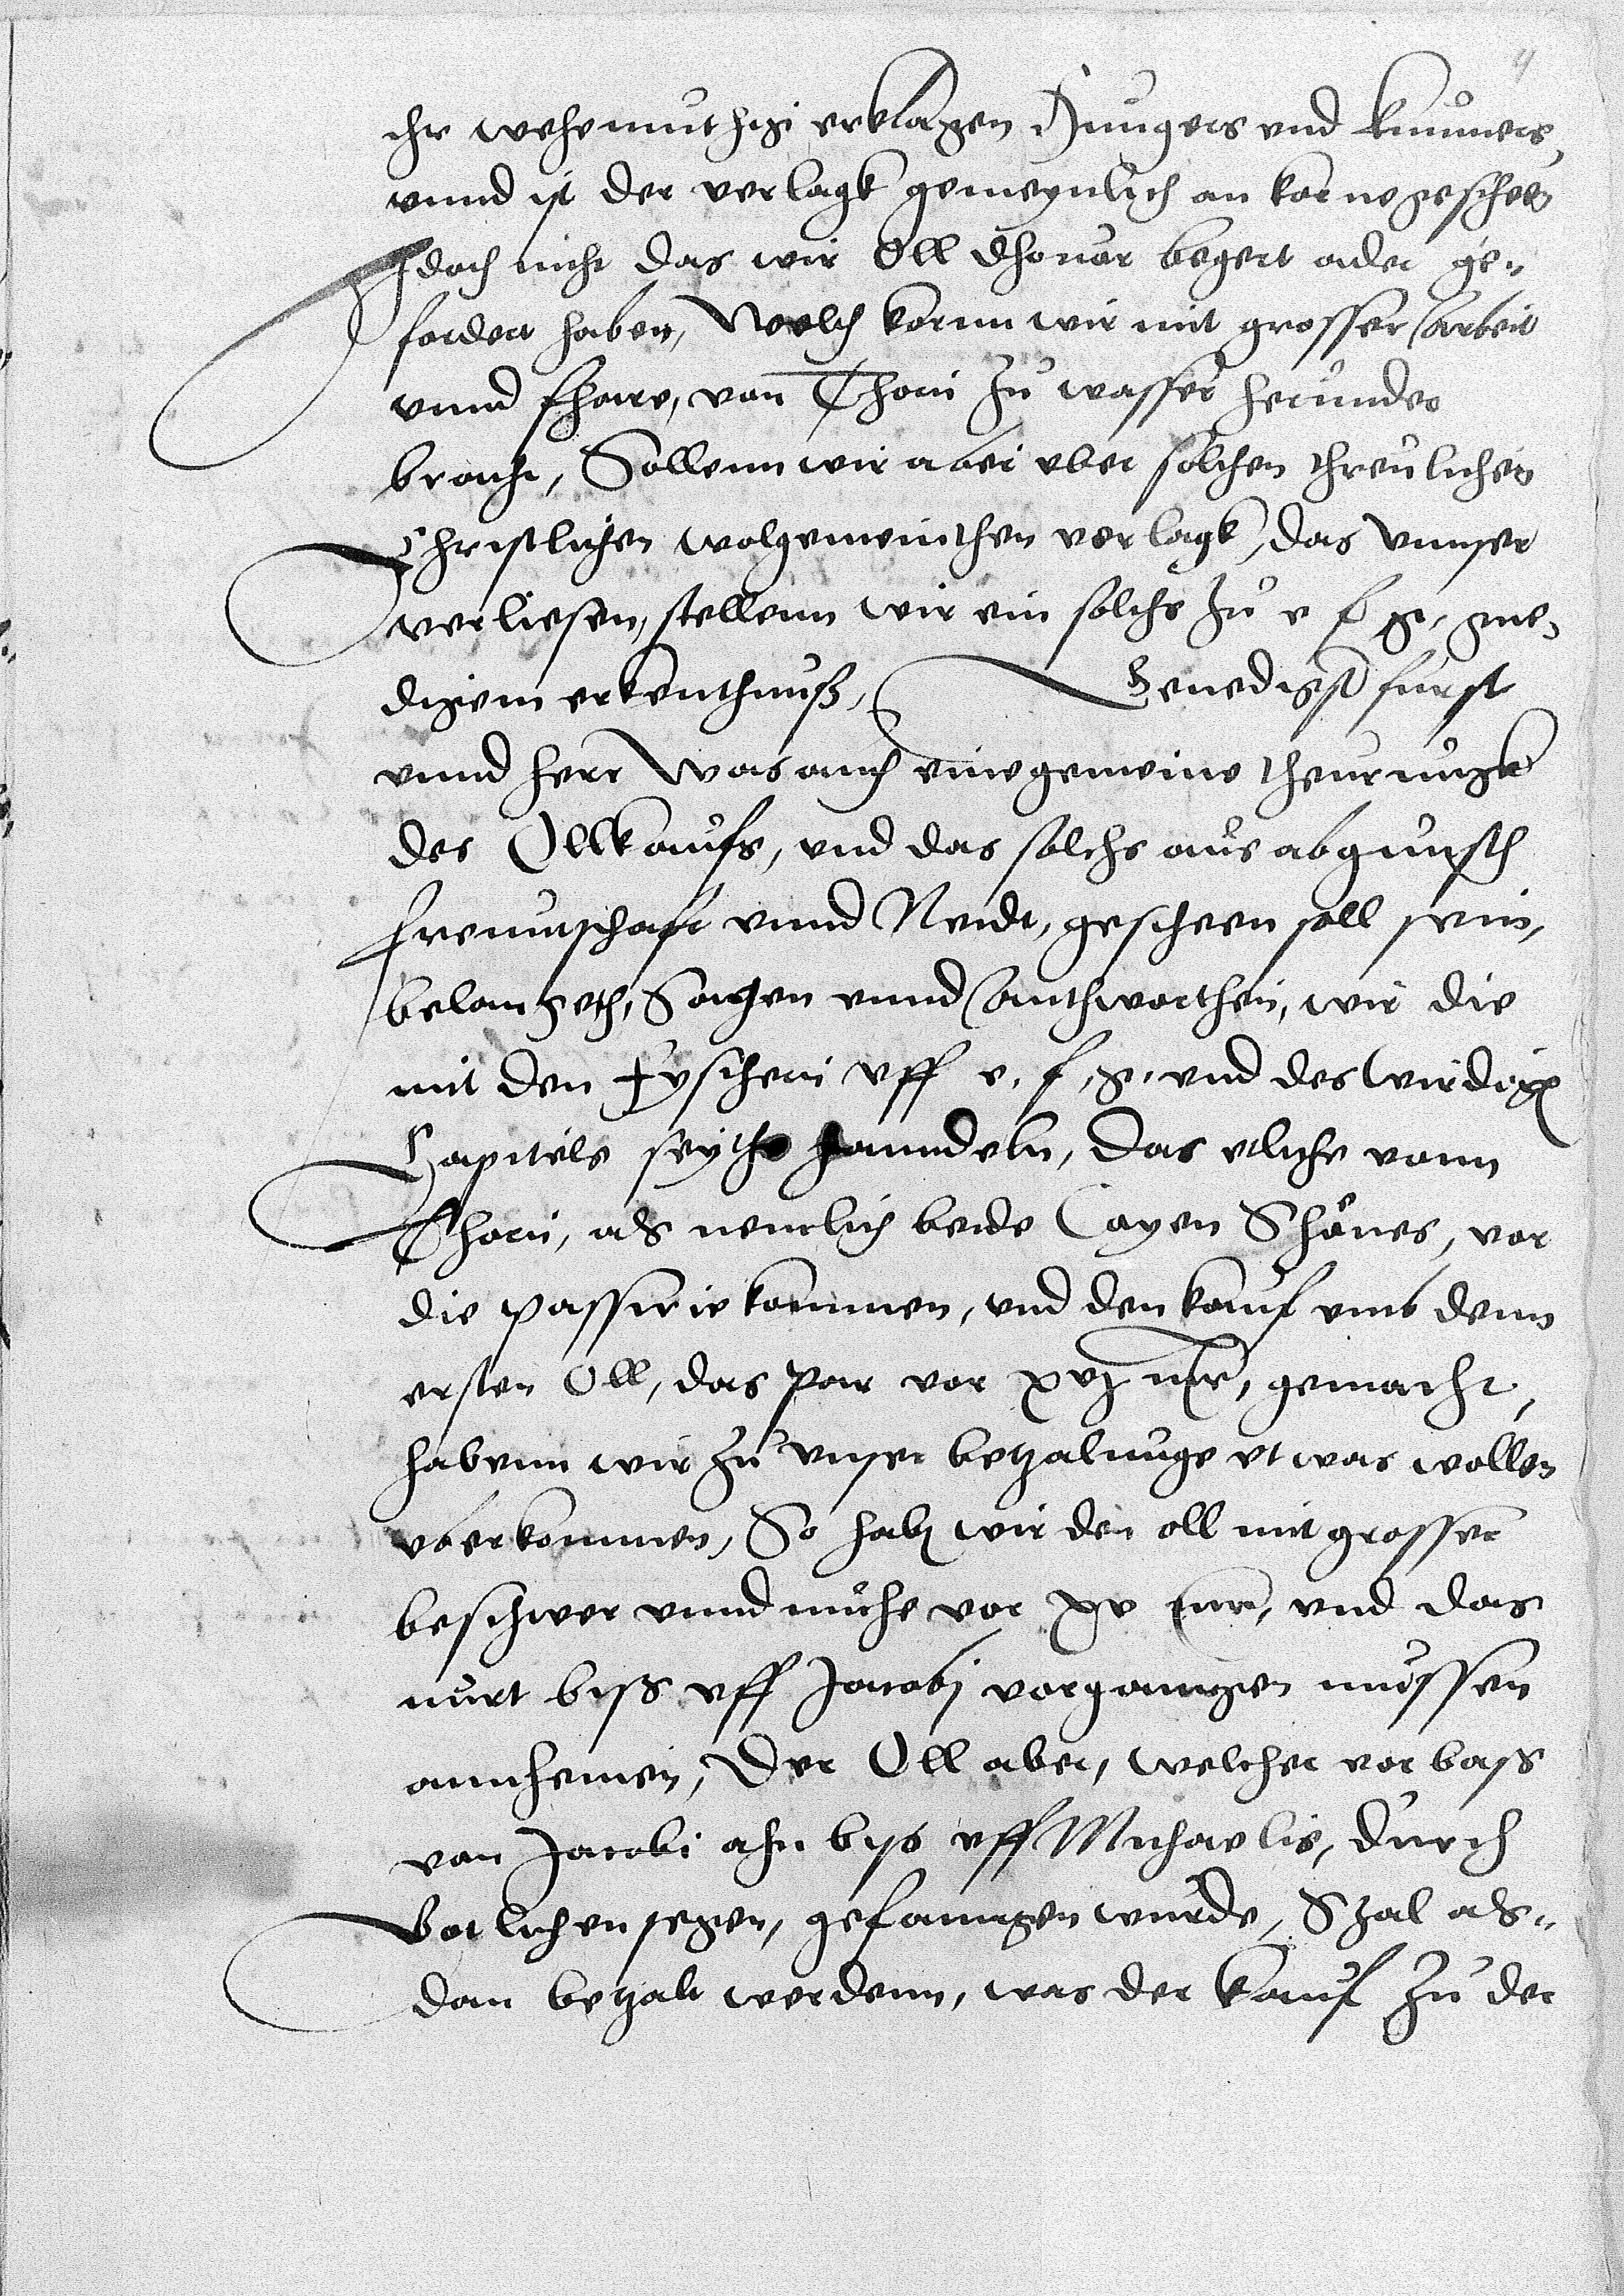 ihr wehemuthige erklagen Hungers vnd kummers,
vnnd ist der verlagk gemeynlich an korne gescheen
Jdoch nicht das wir Oll dhonar begert ader ge„
fordert haben, Welch kornn wir mit grosser arbeit
vnnd fhare, von Thorn zu wasser herunder
bracht, Sollenn wir aber vber solchen threulichen
Christlichen wolgemeinthen verlagk, das vnnser
verliesen, stellenn wir ein solchs zu e f g, gne„
digem erkenthnuß, Genedigst furst
vnnd herr Was auch eine gemeine theurungk
des Ollkaufs, vnd das solchs aus abgunsth
freuntschaft vnnd Neidt, gescheen soll sein,
belangeth, Sagen vnnd anthworthen, wir die
mit den fyschern vff e, f, g, vnd des wirdigen
Capitels seythe hanndeln, das etliche vonn
Thorn, als nemlich beide Cayen Shönes, vor
die passerie kommen, vnd den kauf vmb denn
ersten Oll, das par vor xvj mr, gemacht,
habenn wir zu vnser betzalunge etwas wollen
vberkommen, So haben wir den oll mit grosser
beschwer vnnd muhe vor xv mr, vnd das
nurt byß vff Jacobj vorgangen mussen
annhemen, Der Oll aber, welcher vorbaß
von Jacobi ahn byß vff Michaelis, durch
Gotlichen segen, gefanngen wurde, Szal als„
dan betzalt werdenn, was der kauf zu der